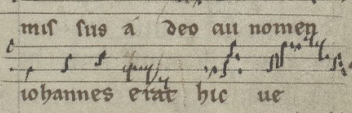 mis sus a deo cui nomen
iohannes erat hic ue